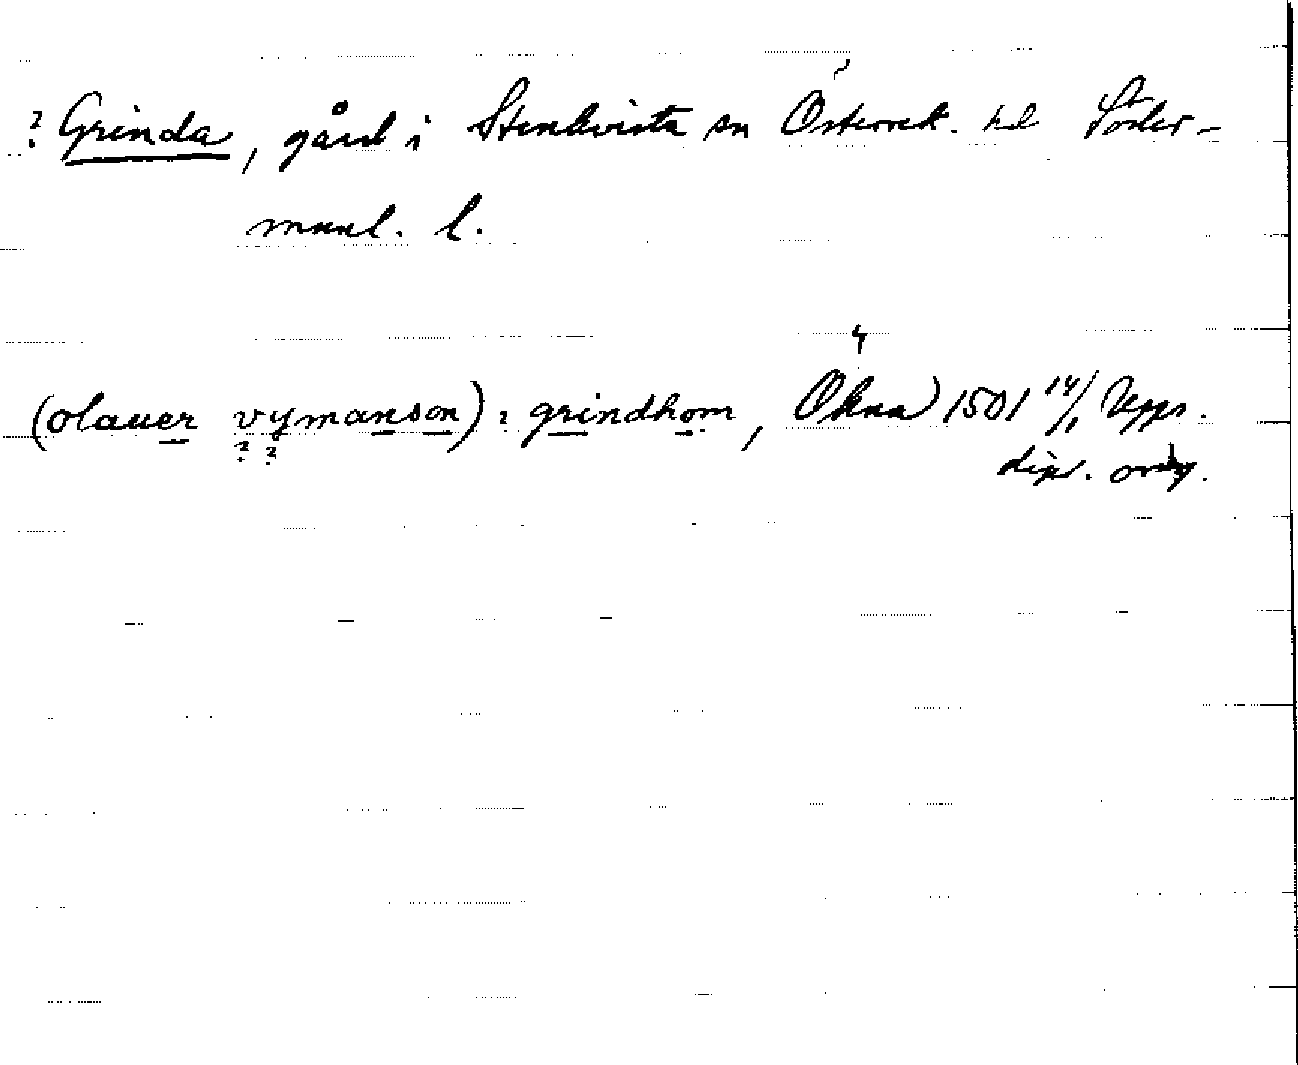 ? Grinda, gård i Stenkvista sn Österrek. hd Söder-
manl. l.
(olauer vymanson) i grindhom, Økna) 1501 14/1 Upps.
? ?
dipl. orig.